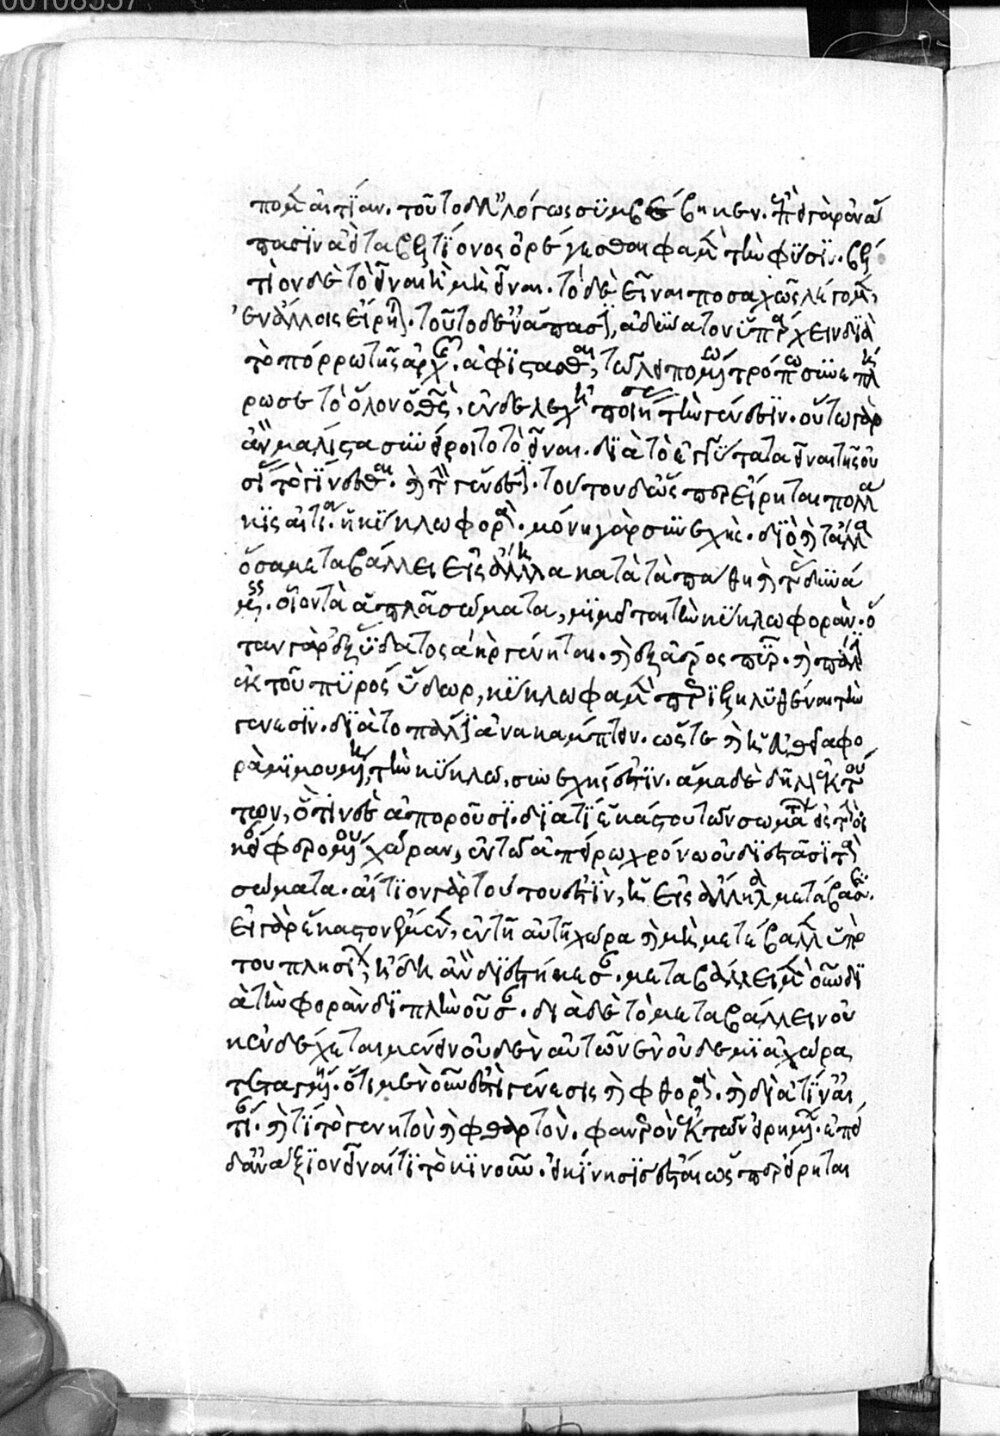 πομ αἰτίαν. τοῦτο δ' εὐλόγως συμβέβηκεν. ἐπεὶ γὰρ ἐν ἅ
πασιν ἀεὶ τα βελτίονος ὀρέγεσθαι φαμὲν τὴν φύσιν. βέλ
τιον δὲ τὸ εἶναι ἢ μὴ εἶναι. τὸ δὲ εἶναι ποσαχῶς λέγομεν,
ἐν ἄλλοις εἴρηται. τοῦτο δ' ἐν ἅπασιν, ἀδύνατον ὑπάρχειν διὰ
τὸ πόρρω τῆς ἀρχῆς ἀφίστασθαι, τῷ λειπομένῳ τρόπῳ συνεπλή
ρωσε τὸ ὅλον ὁ θεὸς, ἐνδελεχῆ ποιήσας τὴν γένεσιν. οὕτω γὰρ
ἂν μάλιστα συνείροιτο τὸ εἶναι. διὰ τὸ ἐγγύτατα εἶναι τῆς οὐ
σίας τὸ γίνεσθαι ἀεὶ καὶ τὴν γένεσιν. τούτου δ' ὥσπερ εἴρηται πολλά
κις αἴτιον ἡ κύκλω φορὰ. μόνη γὰρ συνεχὴς. διὸ καὶ τἄλλα
ὅσα μεταβάλλει εἰς ἄλληλα κατὰ τὰ πάθη καὶ τὰς δυνά
μεις. οἷον τὰ ἁπλᾶ σώματα, μιμεῖται τὴν κύκλω φοράν. ὅ
ταν γὰρ ἐξ ὕδατος ἀὴρ γένηται. καὶ ἐξ ἀέρος πῦρ. καὶ πάλιν
ἐκ τοῦ πυρὸς ὕδωρ, κύκλω φαμὲν περιεληλυθέναι τὴν
γένεσιν. διὰ τὸ πάλιν ἀνακάμπτειν. ὥστε καὶ ἡ εὐθεῖα φο
ρὰ μιμουμένη τὴν κύκλω, συνεχής ἐστιν. ἅμα δὲ δῆλον ἐκ τού
των, ὅ τινὲς ἀποροῦσι. διὰ τί ἑκάστου τῶν σωμάτων εἰς τὴν οἰ
κείαν φερομένου χώραν, ἐν τῷ ἀπείρω χρόνω οὐ διεστᾶσι τὰ
σώματα. αἴτιον γὰρ τούτου ἐστὶν, ἡ εἰς ἄλληλα μετάβασις.
εἰ γὰρ ἕκαστον ἔμενεν, ἐν τῇ αὐτῆ χώρα καὶ μὴ μετέβαλλεν ὑπὸ
του πλησίον, ἤδη ἂν διεστήκεσαν. μεταβάλλει μὲν οὖν δι
ὰ τὴν φορὰν διπλὴν οὖσαν. διὰ δὲ τὸ μεταβάλλειν οὐ
κ ἐνδέχεται μένειν οὐδὲν αὐτῶν ἐν οὐδεμιᾷ χώρα
τεταγμένη. ὅτι μὲν οὖν ἐστὶ γένεσις καὶ φθορὰ. καὶ διὰ τίν' αἰ
τίαν. καὶ τί τὸ γενητὸν καὶ φθαρτὸν. φανερὸν ἐκ τῶν εἰρημένων. ἐπεὶ
δ' ἂν ἄξιον εἶναί τι τὸ κινοῦν. εἰ κίνησις ἔσται ὥσπερ εἴρηται